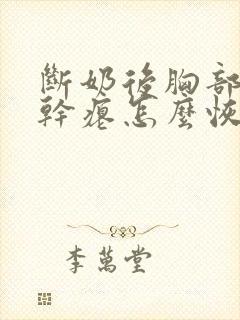 斷奶後胸部
幹癟怎麼恢
李萬堂